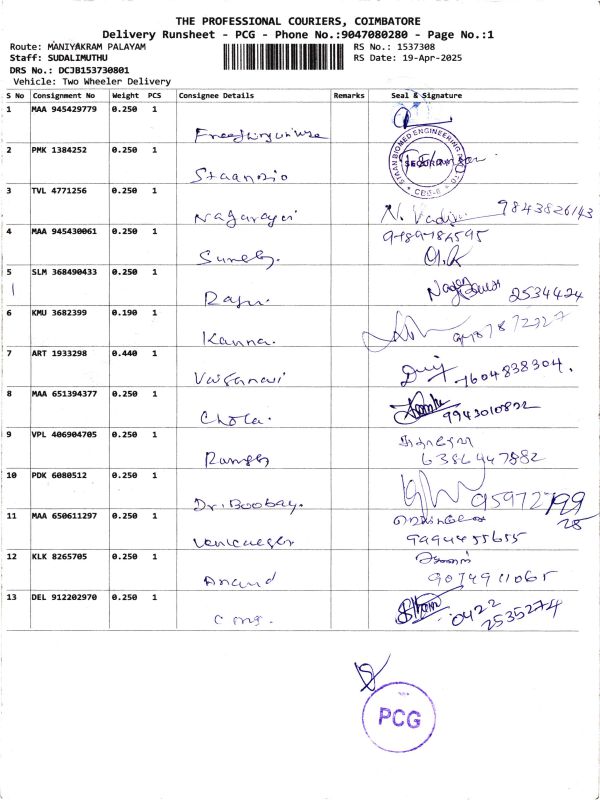 THE PROFESSIONAL COURIERS, COIMBATORE
Delivery Runsheet - PCG - Phone No.:9047080280 - Page No.:1
Route: MANIYAKRAM PALAYAM
RS No.: 1537308
Staff: SUDALIMUTHU
RS Date: 19-Apr-2025
DRS No.: DCJB153730801
Vehicle: Two Wheeler Delivery
S No Consignment No Weight PCS Consignee Details Remarks Seal & Signature
1 MAA 945429779 0.250 1
2 PMK 1384252 0.250 1
STAAN BIOMED ENGINEERING
SECURITY
CBE-6
Staanbio
3 TVL 4771256 0.250 1
Nagarajan N. 9843826143
4 MAA 945430061 0.250 1
9789786595
Suresh.
5 SLM 368490433 0.250 1
Raju. 2534424
6 KMU 3682399 0.190 1
Kanna. 9487872727
7 ART 1933298 0.440 1
Vaisanavi 7604838304.
8 MAA 651394377 0.250 1
Chola. 9943010822
9 VPL 406904705 0.250 1
Ramesh 6386447882
10 PDK 6080512 0.250 1
Dr. Boobay. 95972 199
28
11 MAA 650611297 0.250 1
9994455655
12 KLK 8265705 0.250 1
Anand 9074911065
13 DEL 912202970 0.250 1
0422
2535274
PCG